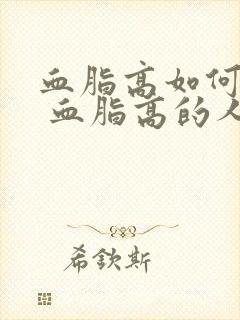 血脂高如何
血脂高的人
希欽斯